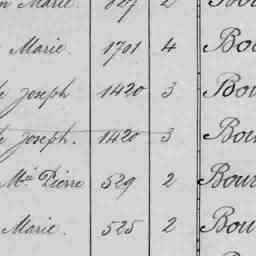 Marie. 827 2 Bou
Marie. 1701 4 Bou
Joseph 1420 3 Bou
Joseph. 1420 3 Bou
Pierre 529 2 Bour
Marie. 525 2 Bou